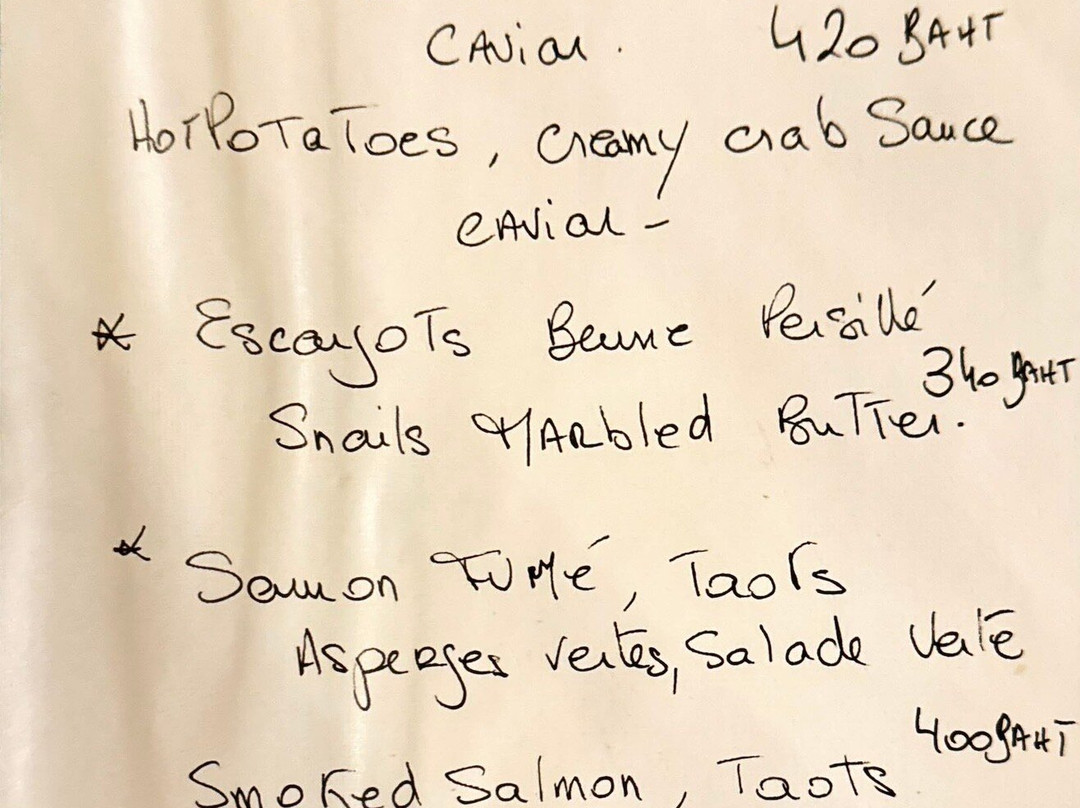 CAVIAR. 420 BAHT
HOTPOTATOES, Creamy crab Sauce
CAVIAR -
* ESCARGOTS Beurre Persillé
340 BAHT
Snails MARbled BUTTER.
* Saumon FUMÉ, Taots
Asperges vertes, Salade Verte
400 BAHT
Smoked Salmon, Taots